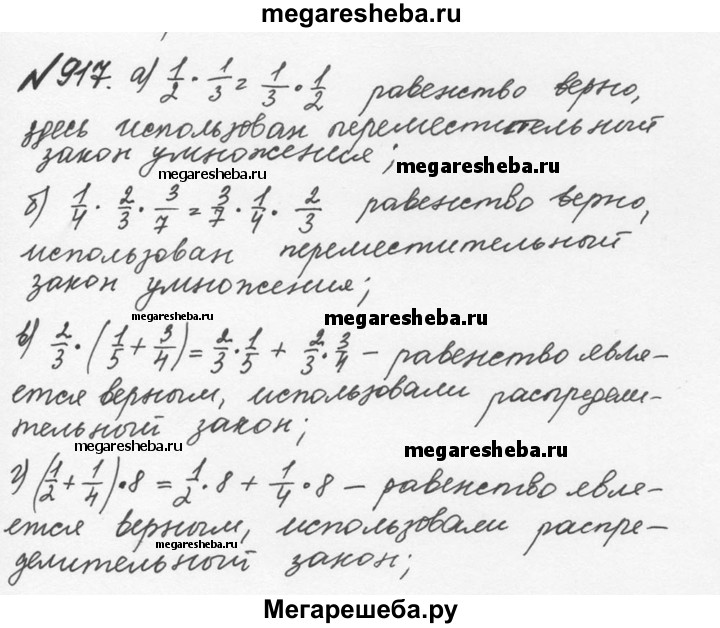 megaresheba.ru
№917. а) 1/2 · 1/3 = 1/3 · 1/2 равенство верно,
здесь использован переместительный
закон умножения;
megaresheba.ru
megaresheba.ru
б) 1/4 · 2/3 · 3/7 = 3/7 · 1/4 · 2/3 равенство верно,
использован переместительный
закон умножения;
megaresheba.ru
megaresheba.ru
в) 2/3 · (1/5 + 3/4) = 2/3 · 1/5 + 2/3 · 3/4 – равенство явля-
ется верным, использовали распредели-
тельный закон;
megaresheba.ru
megaresheba.ru
г) (1/2 + 1/4) · 8 = 1/2 · 8 + 1/4 · 8 – равенство явля-
ется верным, использовали распре-
megaresheba.ru
делительный закон;
Мегарешеба.ру